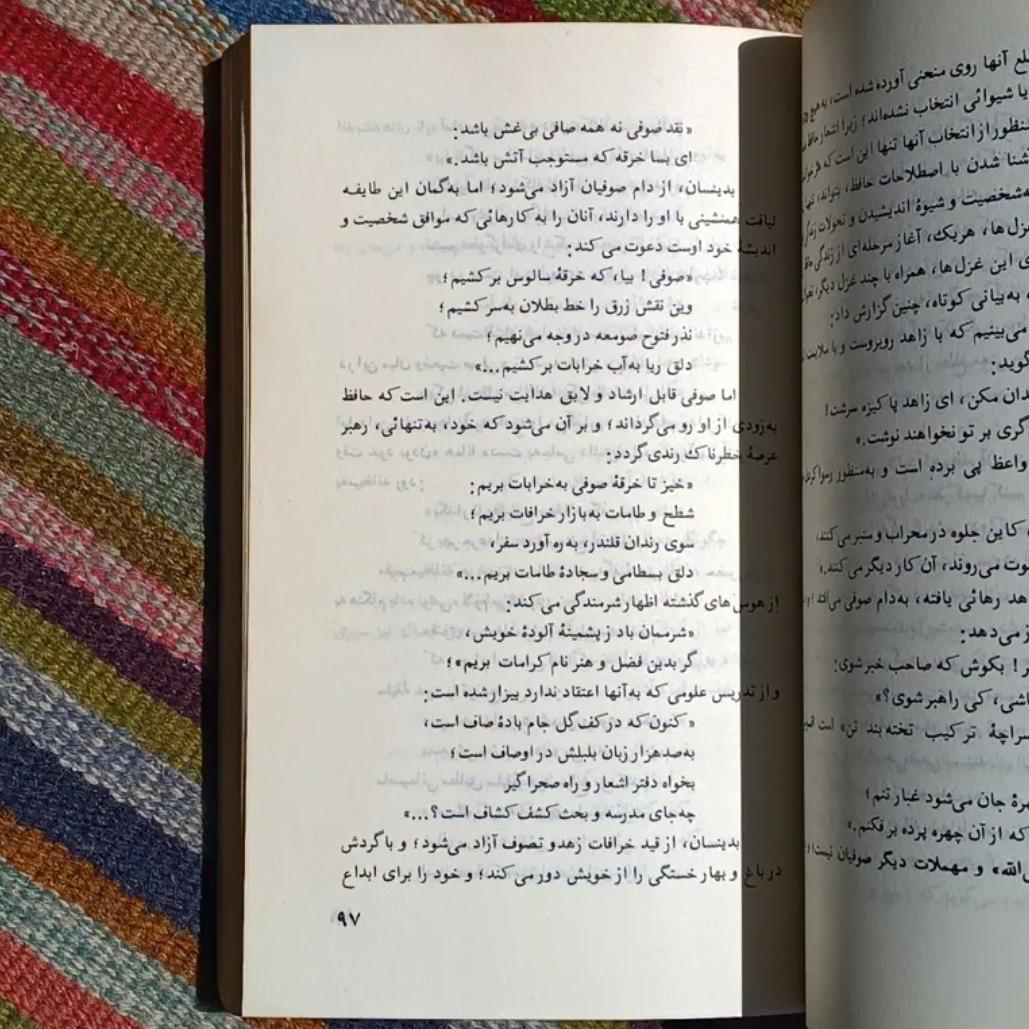 « نقد صوفی نه همه صافی بی‌غش باشد:
ای بسا خرقه که مستوجب آتش باشد.»
بدینسان، از دام صوفیان آزاد می‌شود؛ اما به‌گمان این طایفه
لیاقت همنشینی با او را دارند، آنان را به کارهائی که موافق شخصیت و
اندیشهٔ خود اوست دعوت می‌کند:
«صوفی! بیا، که خرقهٔ سالوس برکشیم؛
وین نقش زرق را خط بطلان به‌سر کشیم؛
نذر فتوح صومعه در وجه می‌نهیم؛
دلق ریا به‌آب خرابات برکشیم...»
اما صوفی قابل ارشاد و لایق هدایت نیست. این است که حافظ
به‌زودی از او رو می‌گرداند؛ و بر آن می‌شود که خود، به‌تنهائی، رهبر
عرصهٔ خطرناک رندی گردد:
«خیز تا خرقهٔ صوفی به‌خرابات بریم:
شطح و طامات به‌بازار خرافات بریم؛
سوی رندان قلندر، به‌ره آورد سفر،
دلق بسطامی و سجادهٔ طامات بریم...»
از هوس‌های گذشته اظهار شرمندگی می‌کند:
«شرممان باد ز پشمینهٔ آلودهٔ خویش،
گر بدین فضل و هنر نام کرامات بریم»؛
و از تدریس علومی که به‌آنها اعتقاد ندارد بیزار شده است:
« کنون که در کف گل جام بادهٔ صاف است،
به‌صدهزار زبان بلبلش در اوصاف است؛
بخواه دفتر اشعار و راه صحرا گیر
چه‌جای مدرسه و بحث کشف کشاف است؟...»
بدینسان، از قید خرافات زهد و تصوف آزاد می‌شود؛ و با گردش
در باغ و بهار خستگی را از خویش دور می‌کند؛ و خود را برای ابداع
۹۷
لع آنها روی منحنی آورده شده است، به‌هیچ
یا شیوائی انتخاب نشده‌اند؛ زیرا اشعار حافظ
منظور از انتخاب آنها تنها این است که
شنا شدن با اصطلاحات حافظ، بتواند،
شخصیت و شیوهٔ اندیشیدن و تحولات
غزل‌ها، هریک، آغاز مرحله‌ای از زندگی
ی این غزل‌ها، همراه با چند غزل دیگر،
، به‌بیانی کوتاه، چنین گزارش داد:
می‌بینیم که با زاهد روبروست و با ملایت
گوید:
ندان مکن، ای زاهد پاکیزه سرشت!
گری بر تو نخواهند نوشت.»
واعظ پی برده است و به‌منظور رسوا کردن
، کاین جلوه در محراب و منبر می‌کنند،
وت می‌روند، آن کار دیگر می‌کنند.»
هد رهائی یافته، به‌دام صوفی می‌افتد
ز می‌دهد:
ر! بکوش که صاحب خبر شوی:
اشی، کی راهبر شوی؟»
سراچهٔ ترکیب تخته‌بند تن» است
هرهٔ جان می‌شود غبار تنم؛
که از آن چهره پرده برفکنم.»
الله» و مهملات دیگر صوفیان نیست